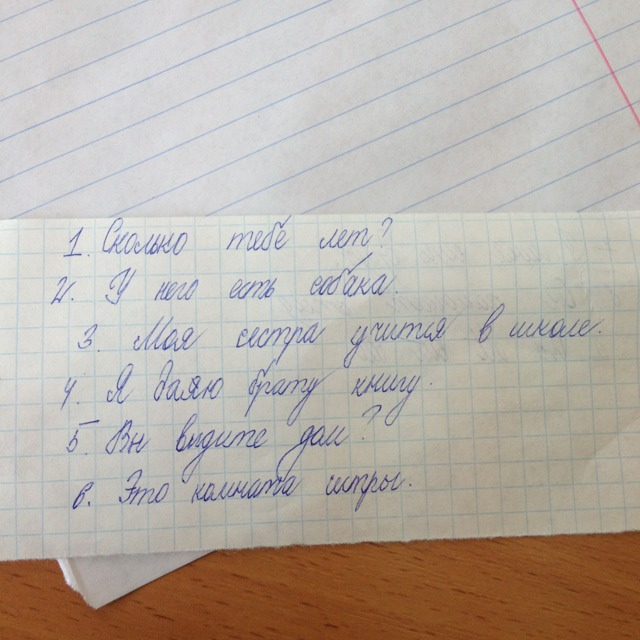 1. Сколько тебе лет?
2. У него есть собака.
3. Моя сестра учится в школе.
4. Я даяю брату книгу.
5. Вы видите дом?
6. Это комната сестры.